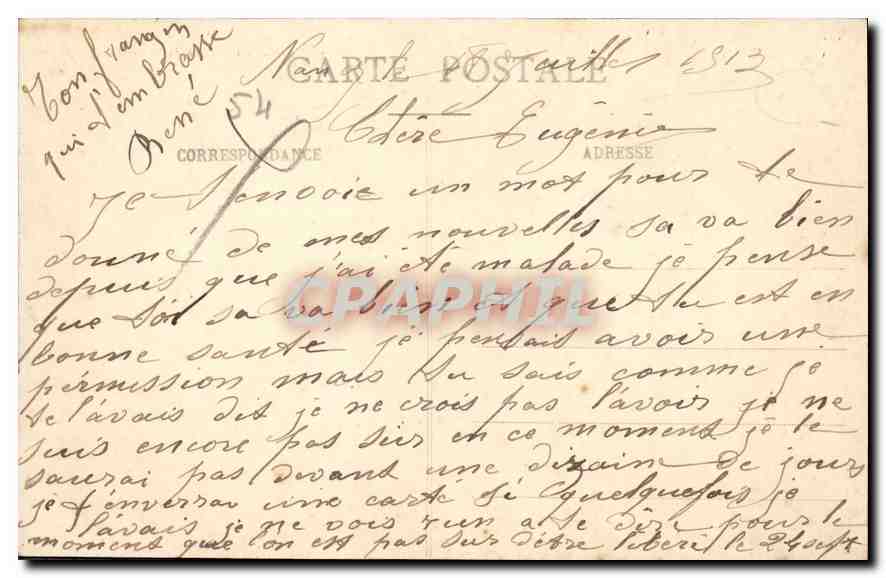 Ton frangin
qui t'embrasse
René
54
CARTE POSTALE
Nancy le 18 Juillet 1913
Chère Eugénie
CORRESPONDANCE
ADRESSE
Je t'envoie un mot pour te
donné de mes nouvelles sa va bien
depuis que j'ai été malade je pense
que toi sa va bien et que tu est en
bonne santé je pensais avoir une
permission mais tu sais comme je
te l'avais dit je ne crois pas l'avoir je ne
suis encore pas sur en ce moment je le
saurai pas avant une dizaine de jours
je t'enverrai une carte si quelquefois je
l'avais je ne vois rien a te dire pour le
moment que l'on est pas sur d'être libéré le 24 sept
CPAPHIL